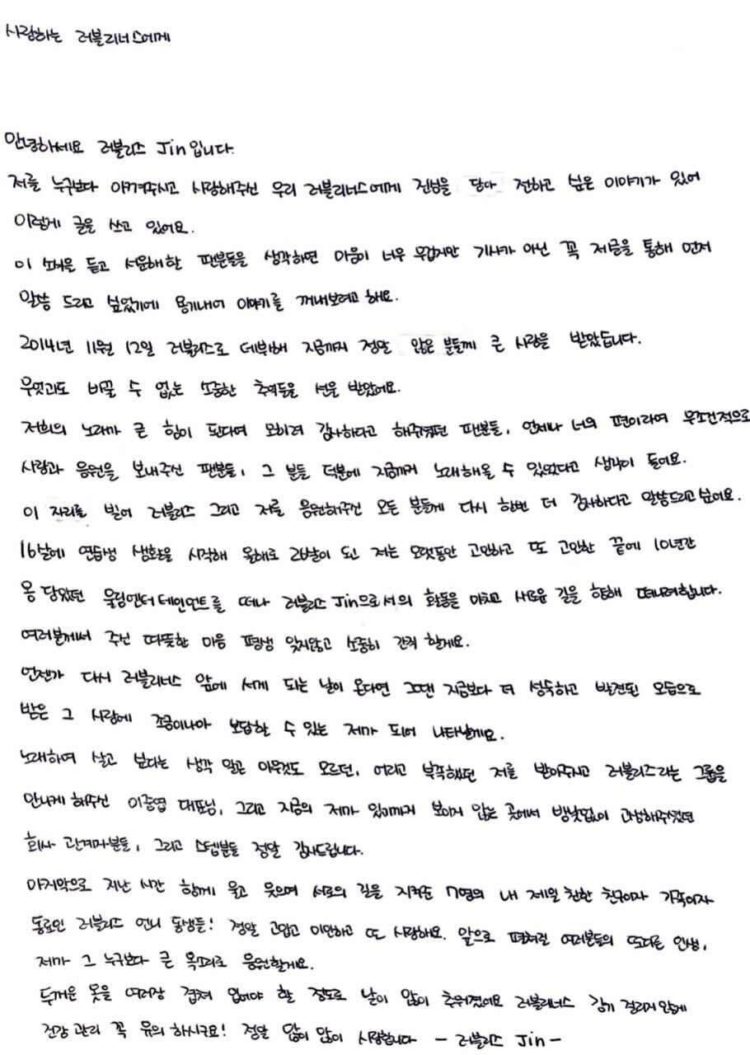 사랑하는 러블리너스에게
안녕하세요 러블리즈 Jin입니다.
저를 누구보다 아껴주시고 사랑해주신 우리 러블리너스에게 진심을 담아 전하고 싶은 이야기가 있어
이렇게 글을 쓰고 있어요.
이 소식을 듣고 서운해할 팬분들을 생각하면 마음이 너무 무겁지만 기사가 아닌 꼭 저희글을 통해 먼저
말씀 드리고 싶었기에 용기내어 이야기를 꺼내보려고 해요.
2014년 11월 12일 러블리즈로 데뷔해 지금까지 정말 많은 분들께 큰 사랑을 받았습니다.
무엇과도 바꿀 수 없는 소중한 추억들을 선물 받았어요.
저희의 노래가 큰 힘이 된다며 오히려 감사하다고 해주셨던 팬분들, 언제나 너의 편이라며 무조건적으로
사랑과 응원을 보내주신 팬분들, 그 분들 덕분에 지금까지 노래해올 수 있었다고 생각이 들어요.
이 자리를 빌어 러블리즈 그리고 저를 응원해주신 모든 분들께 다시 한번 더 감사하다고 말씀드리고싶어요.
16살에 연습생 생활을 시작해 올해로 26살이 된 저는 오랫동안 고민하고 또 고민한 끝에 10년간
몸 담았던 울림엔터테인먼트를 떠나 러블리즈 Jin으로서의 활동을 마치고 새로운 길을 향해 떠나려합니다.
여러분께서 주신 따뜻한 마음 평생 잊지않고 소중히 간직 할게요.
언젠가 다시 러블리너스 앞에 서게 되는 날이 온다면 그땐 지금보다 더 성숙하고 발전된 모습으로
받은 그 사랑에 조금이나마 보답할 수 있는 제가 되어 나타날게요.
노래하며 살고 싶다는 생각 말곤 아무것도 모르던, 어리고 부족했던 저를 받아주시고 러블리즈라는 그룹을
만나게 해주신 이중엽 대표님, 그리고 지금의 제가 있기까지 보이지 않는 곳에서 밤낮없이 고생해주셨던
회사 관계자분들, 그리고 스텝분들 정말 감사드립니다.
마지막으로 지난 시간 함께 울고 웃으며 서로의 길을 지켜준 7명의 내 제일 친한 친구이자 가족이자
동료인 러블리즈 언니 동생들! 정말 고맙고 미안하고 또 사랑해요. 앞으로 펼쳐질 여러분들의 또다른 인생,
제가 그 누구보다 큰 목소리로 응원할게요.
두꺼운 옷을 여러장 겹쳐 입어야 할 정도로 날이 많이 추워졌어요 러블리너스 감기 걸리지 않게
건강 관리 꼭 유의 하시구요! 정말 많이 많이 사랑합니다 - 러블리즈 Jin -